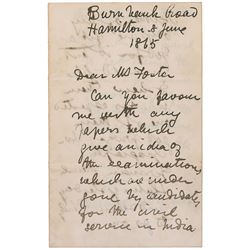 Burnbank road
Hamilton 2 June
1865
Dear Mr Foster
Can you favour
me with any
papers which
give an idea of
the examinations
which are under
gone by candidates
for the civil
service in India